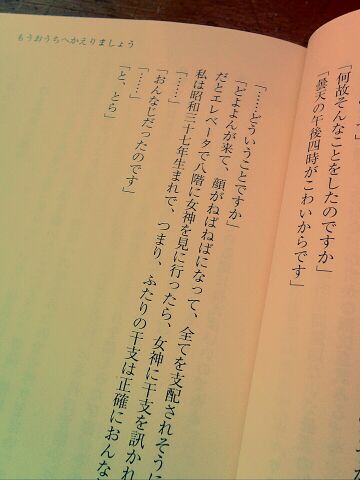 もうおうちへかえりましょう
「何故そんなことをしたのですか」
「曇天の午後四時がこわいからです」
「……どういうことですか」
「どよよんが来て、顔がねばねばになって、全てを支配されそうに
だとエレベータで八階に女神を見に行ったら、女神に干支を訊かれ
私は昭和三十七年生まれで、つまり、ふたりの干支は正確におんな
「……」
「おんなじだったのです」
「……」
「と、とら」